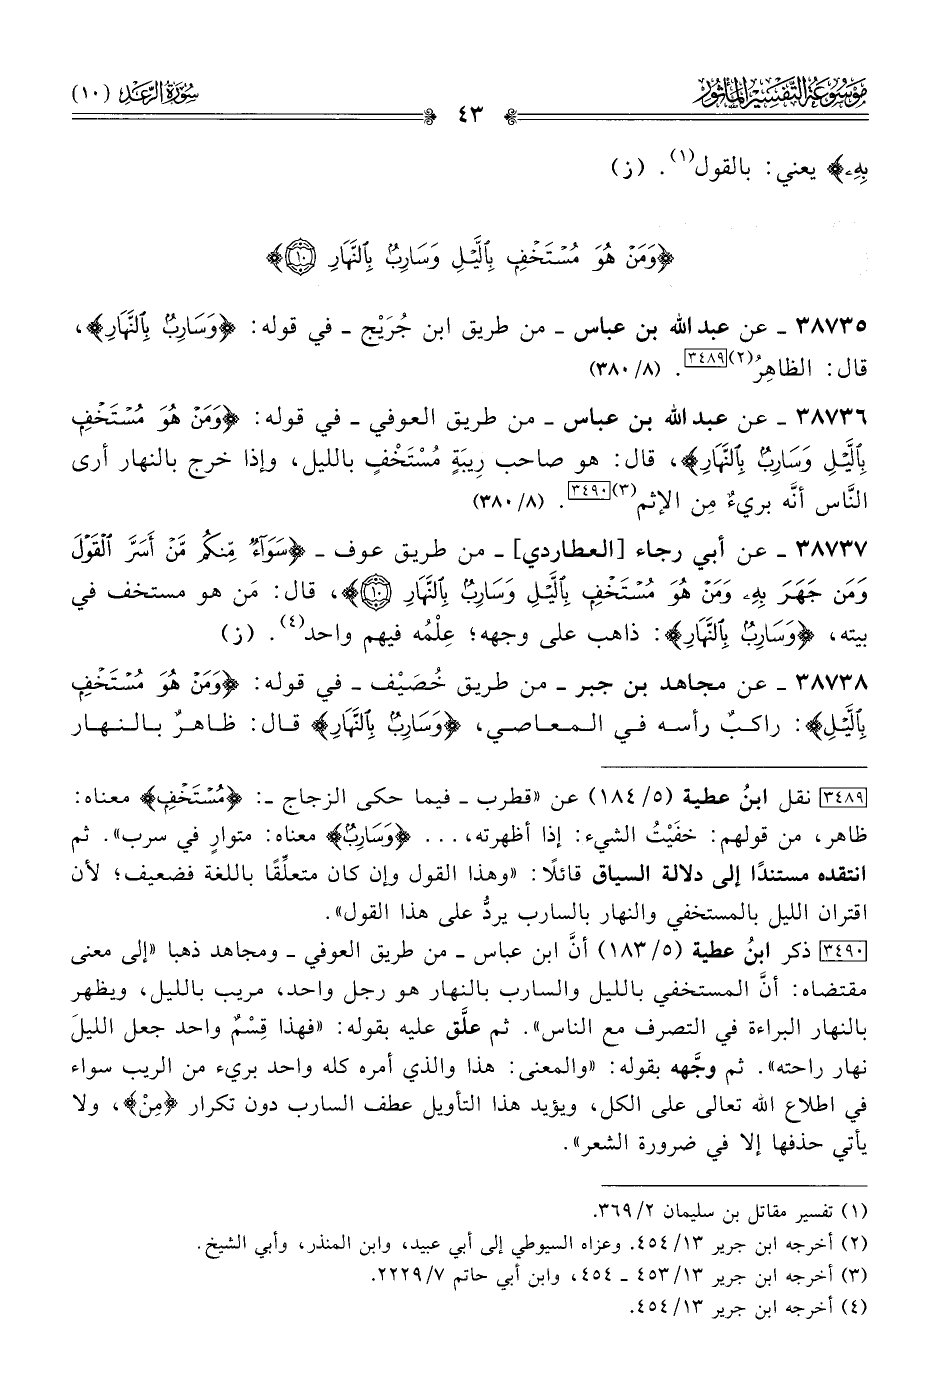 مَوْسُوعَةُ التَّفْسِيرِ المَأْثُور
سُورَةُ الرَّعْدِ (١٠)
٤٣
بِهِۦ﴾ يعني: بالقول(١). (ز)
﴿وَمَنۡ هُوَ مُسۡتَخۡفِۭ بِٱلَّيۡلِ وَسَارِبُۢ بِٱلنَّهَارِ ١٠﴾
٣٨٧٣٥ ـ عن عبد الله بن عباس ـ من طريق ابن جُرَيْج ـ في قوله: ﴿وَسَارِبُۢ بِٱلنَّهَارِ﴾،
قال: الظاهِرُ(٢)[٣٤٨٩]. (٨/ ٣٨٠)
٣٨٧٣٦ ـ عن عبد الله بن عباس ـ من طريق العوفي ـ في قوله: ﴿وَمَنۡ هُوَ مُسۡتَخۡفِۭ
بِٱلَّيۡلِ وَسَارِبُۢ بِٱلنَّهَارِ﴾، قال: هو صاحب رِيبَةٍ مُسْتَخْفٍ بالليل، وإذا خرج بالنهار أرى
النَّاس أنَّه بريءٌ مِن الإثم(٣)[٣٤٩٠]. (٨/ ٣٨٠)
٣٨٧٣٧ ـ عن أبي رجاء [العطاردي] ـ من طريق عوف ـ ﴿سَوَآءٞ مِّنكُم مَّنۡ أَسَرَّ ٱلۡقَوۡلَ
وَمَن جَهَرَ بِهِۦ وَمَنۡ هُوَ مُسۡتَخۡفِۭ بِٱلَّيۡلِ وَسَارِبُۢ بِٱلنَّهَارِ ١٠﴾، قال: مَن هو مستخف في
بيته، ﴿وَسَارِبُۢ بِٱلنَّهَارِ﴾: ذاهب على وجهه؛ عِلْمُه فيهم واحد(٤). (ز)
٣٨٧٣٨ ـ عن مجاهد بن جبر ـ من طريق خُصَيْف ـ في قوله: ﴿وَمَنۡ هُوَ مُسۡتَخۡفِۭ
بِٱلَّيۡلِ﴾: راكبٌ رأسه في المعاصي، ﴿وَسَارِبُۢ بِٱلنَّهَارِ﴾ قال: ظاهرٌ بالنهار
[٣٤٨٩] نقل ابنُ عطية (٥/ ١٨٤) عن «قطرب ـ فيما حكى الزجاج ـ: ﴿مُسۡتَخۡفِۭ﴾ معناه:
ظاهر، من قولهم: خفَيْتُ الشيء: إذا أظهرته، ... ﴿وَسَارِبُۢ﴾ معناه: متوارٍ في سرب». ثم
انتقده مستندًا إلى دلالة السياق قائلًا: «وهذا القول وإن كان متعلِّقًا باللغة فضعيف؛ لأن
اقتران الليل بالمستخفي والنهار بالسارب يردُّ على هذا القول».
[٣٤٩٠] ذكر ابنُ عطية (٥/ ١٨٣) أنَّ ابن عباس ـ من طريق العوفي ـ ومجاهد ذهبا «إلى معنى
مقتضاه: أنَّ المستخفي بالليل والسارب بالنهار هو رجل واحد، مريب بالليل، ويظهر
بالنهار البراءة في التصرف مع الناس». ثم علَّق عليه بقوله: «فهذا قِسْمٌ واحد جعل الليلَ
نهار راحته». ثم وجَّهه بقوله: «والمعنى: هذا والذي أمره كله واحد بريء من الريب سواء
في اطلاع الله تعالى على الكل، ويؤيد هذا التأويل عطف السارب دون تكرار ﴿مِنْ﴾، ولا
يأتي حذفها إلا في ضرورة الشعر».
(١) تفسير مقاتل بن سليمان ٢/ ٣٦٩.
(٢) أخرجه ابن جرير ١٣/ ٤٥٤. وعزاه السيوطي إلى أبي عبيد، وابن المنذر، وأبي الشيخ.
(٣) أخرجه ابن جرير ١٣/ ٤٥٣ ـ ٤٥٤، وابن أبي حاتم ٧/ ٢٢٢٩.
(٤) أخرجه ابن جرير ١٣/ ٤٥٤.